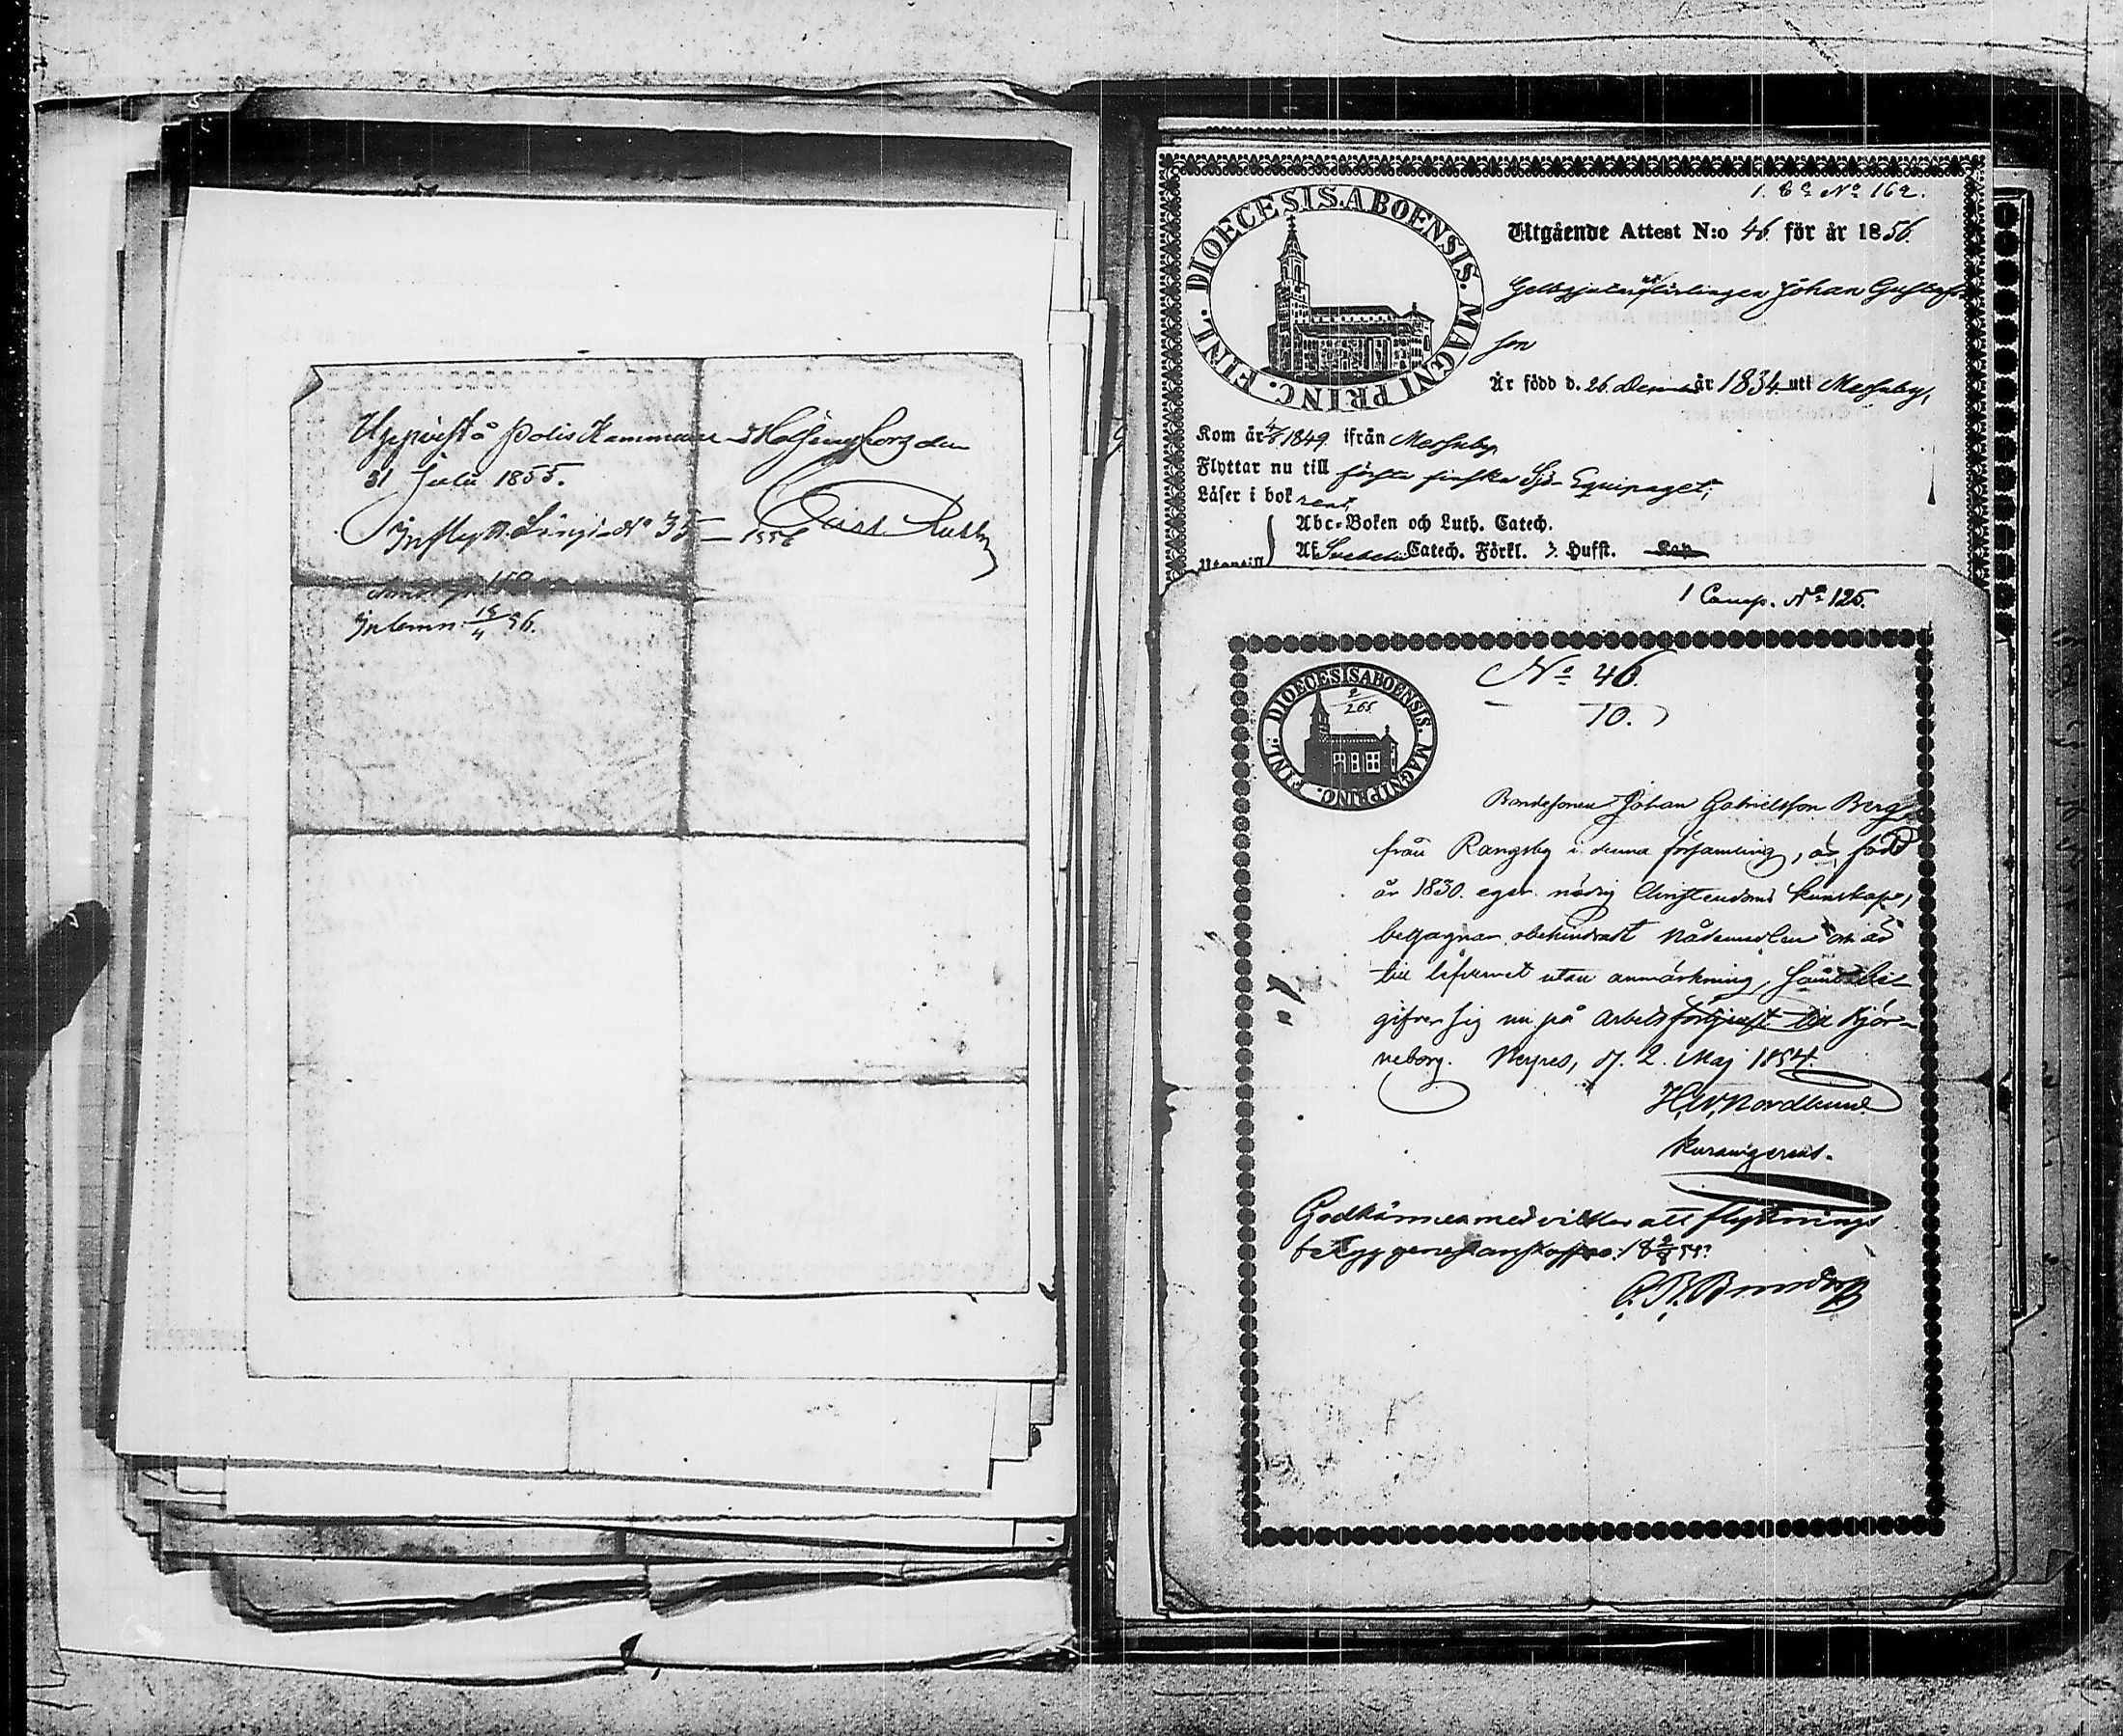 Uppvist å Polis Kammaren i Helsingfors den
31 Julii 1855.
Inflyttn. Längd No 35 — 1856
Inlemn. 15/4 56.
1. Cc No 162.
DIOECESIS.ABOENSIS. MAGNI PRINC. FINL.
Utgående Attest N:o 46 för år 1856.
Johan Gustafs-
son
Är född d. 26 Decem år 1834 uti
Kom år 4/8 1849 ifrån
Flyttar nu till första finska Sjö-Equipaget;
Läser i bok rent,
Abc-Boken och Luth. Catech.
Af Svebelii Catech. Förkl. Hufst. Kap
Utantill
1 Comp. No 125.
No 46.
10.
DIOECESISABOENSIS. MAGNI PRINC. FINL.
2/265
Bondesonen Johan Gabrielsson Berg
från Rangsby i denna församling, är född
år 1830. eger nödig Christendoms kunskap,
begagnar obehindradt nådemedlen och är
till lefvernet utan anmärkning, samt be-
gifver sig nu på arbetsförtjenst till Björ-
neborg. Nerpes, d. 2. Maj 1854.
H.W.Nordlund
Godkännes med vilkor att flyttnings
betyg genast anskaffas: 18